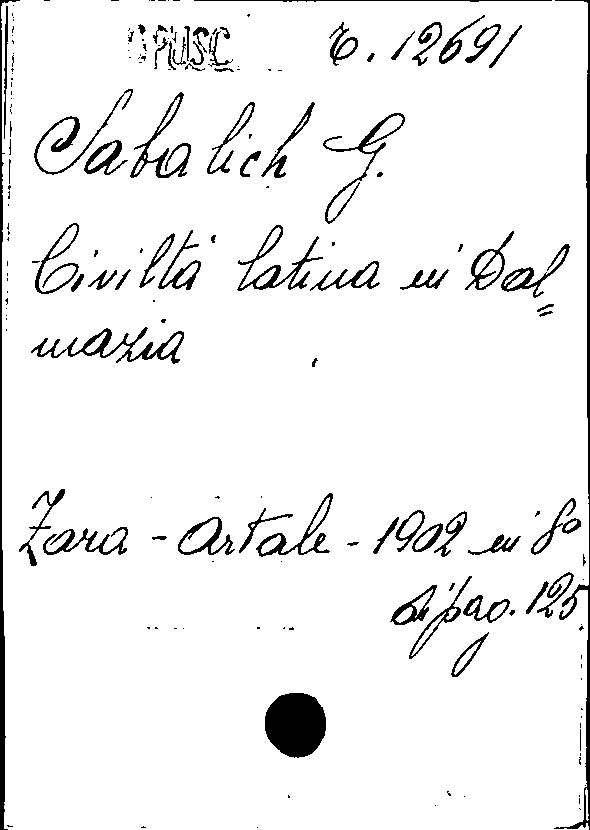 OPUSC T. 12691
Sabalich G.
Civiltà latina in Dal=
mazia
Zara - Artale - 1902 in 8º
di pag. 125